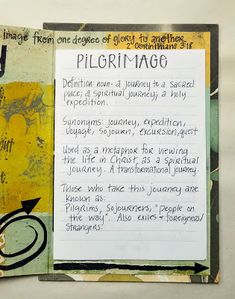 image from one degree of glory to another
2 Corinthians 3:18
PILGRIMAGE
Definition-noun- a journey to a sacred
place; a spiritual journey; a holy
expedition.
Synonyms: journey, expedition,
voyage, sojourn, excursion, quest
Used as a metaphor for viewing
the life in Christ as a spiritual
journey. A transformational journey.
Those who take this journey are
known as:
Pilgrims, Sojourners, "people on
the way". Also exiles + foreigners/
strangers.